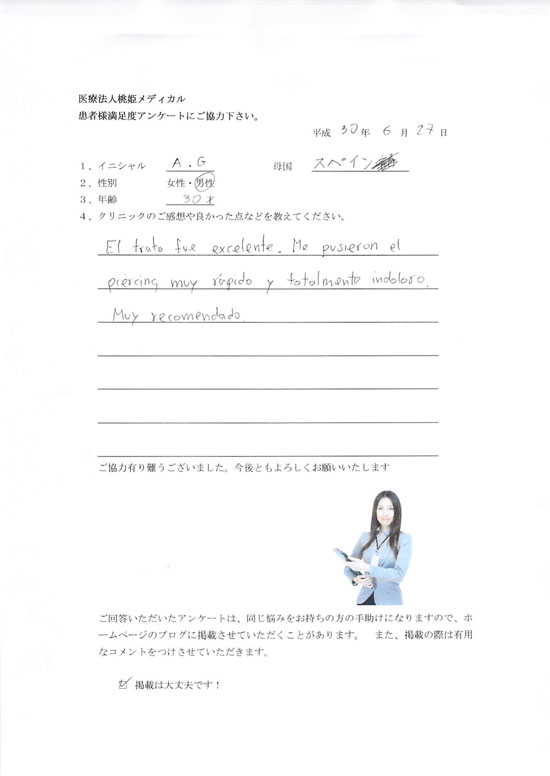 医療法人桃姫メディカル
患者様満足度アンケートにご協力下さい。
平成 30 年 6 月 27 日
1、イニシャル A.G 母国 スペイン
2、性別 女性・男性
3、年齢 30才
4、クリニックのご感想や良かった点などを教えてください。
El trato fue excelente. Me pusieron el
piercing muy rápido y totalmente indoloro.
Muy recomendado.
ご協力有り難うございました。今後ともよろしくお願いいたします
ご回答いただいたアンケートは、同じ悩みをお持ちの方の手助けになりますので、ホ
ームページのブログに掲載させていただくことがあります。 また、掲載の際は有用
なコメントをつけさせていただきます。
☑ 掲載は大丈夫です！